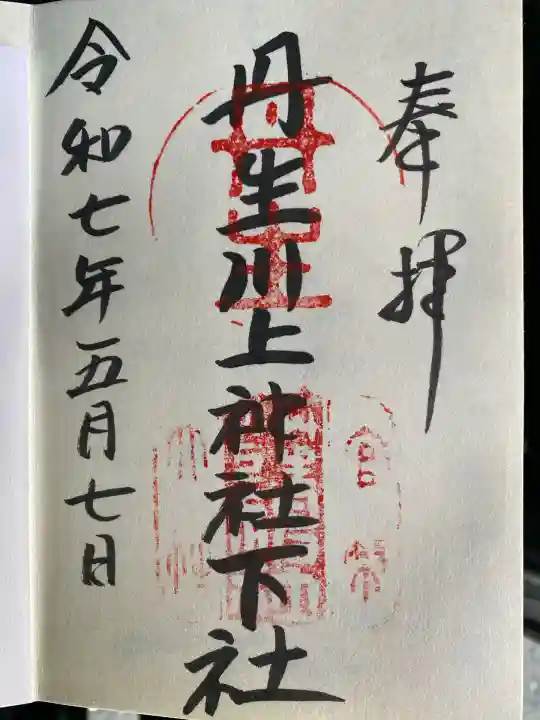 奉拝
丹生川上神社下社
令和七年五月七日